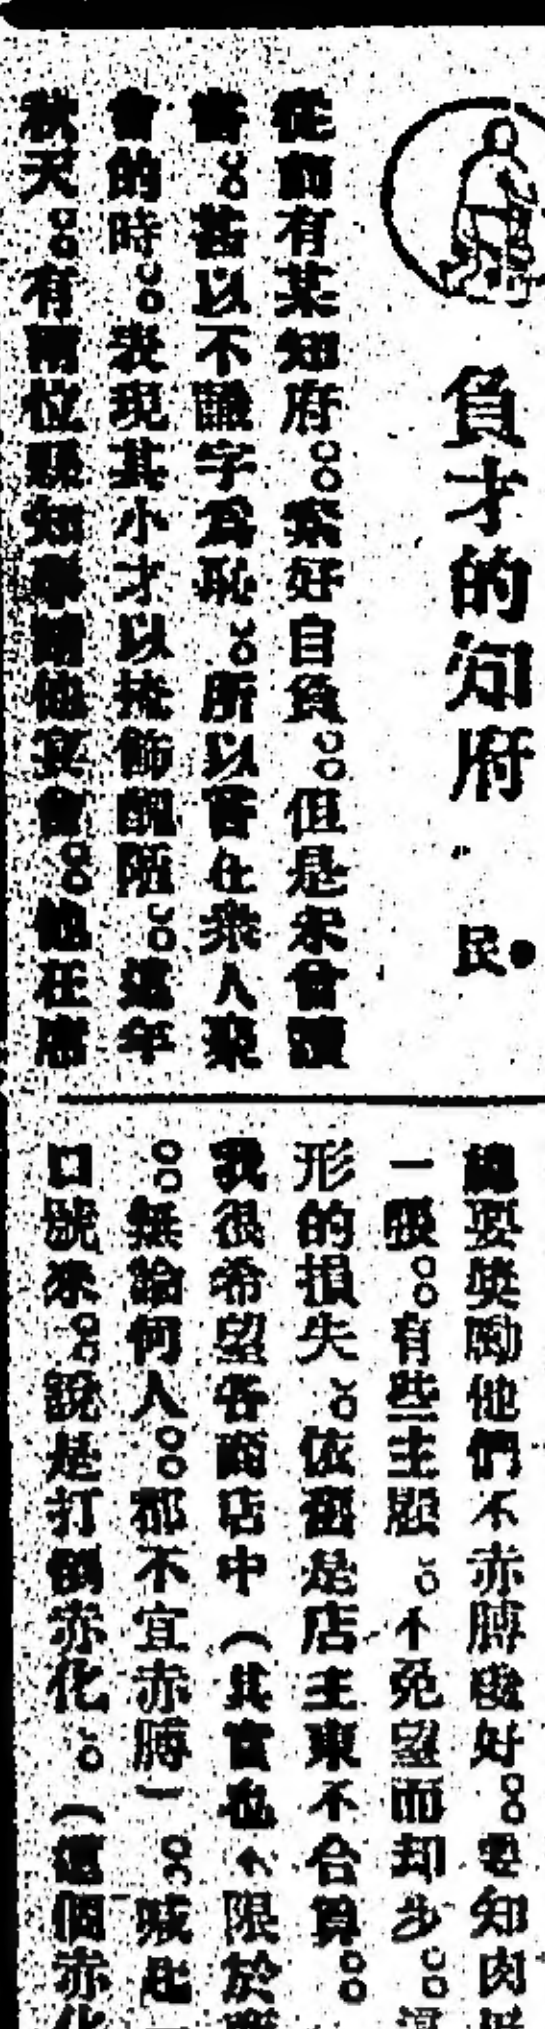 負才的知府
民
從前有某知府。素好自負。但是未曾讀
書。甚以不識字爲恥。所以嘗在衆人聚
會的時。表現其小才以掩飾醜陋。這年
秋天。有兩位縣知事請他宴會。他在席
總要獎勵他們不赤膊纔好。要知肉
一張。有些主顧。不免望而却步。這
形的損失。依舊是店主東不合算。
我很希望各商店中(其實也不限於商
。無論何人。都不宜赤膊)。喊起
口號來。說是打倒赤化。(這個赤化